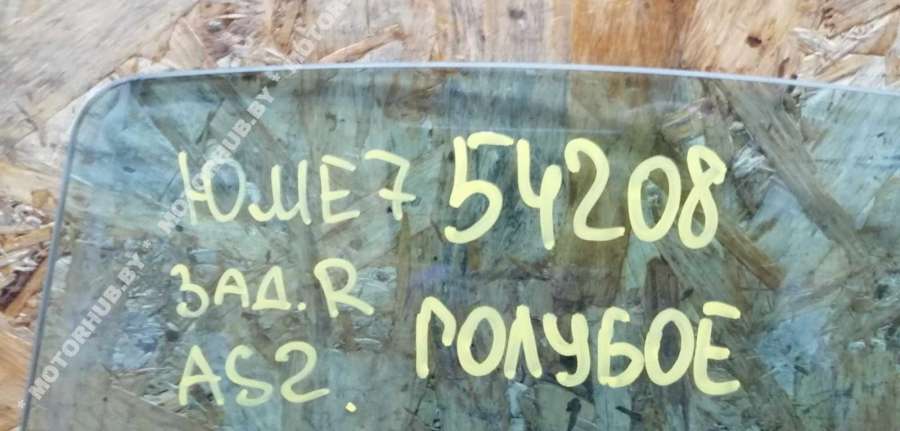 ЮМЕ7 54208
ЗАД.R
ГОЛУБОЕ
AS2.
* MOTORHUB.BY * MOTORHUB.BY * MOTORHUB.BY